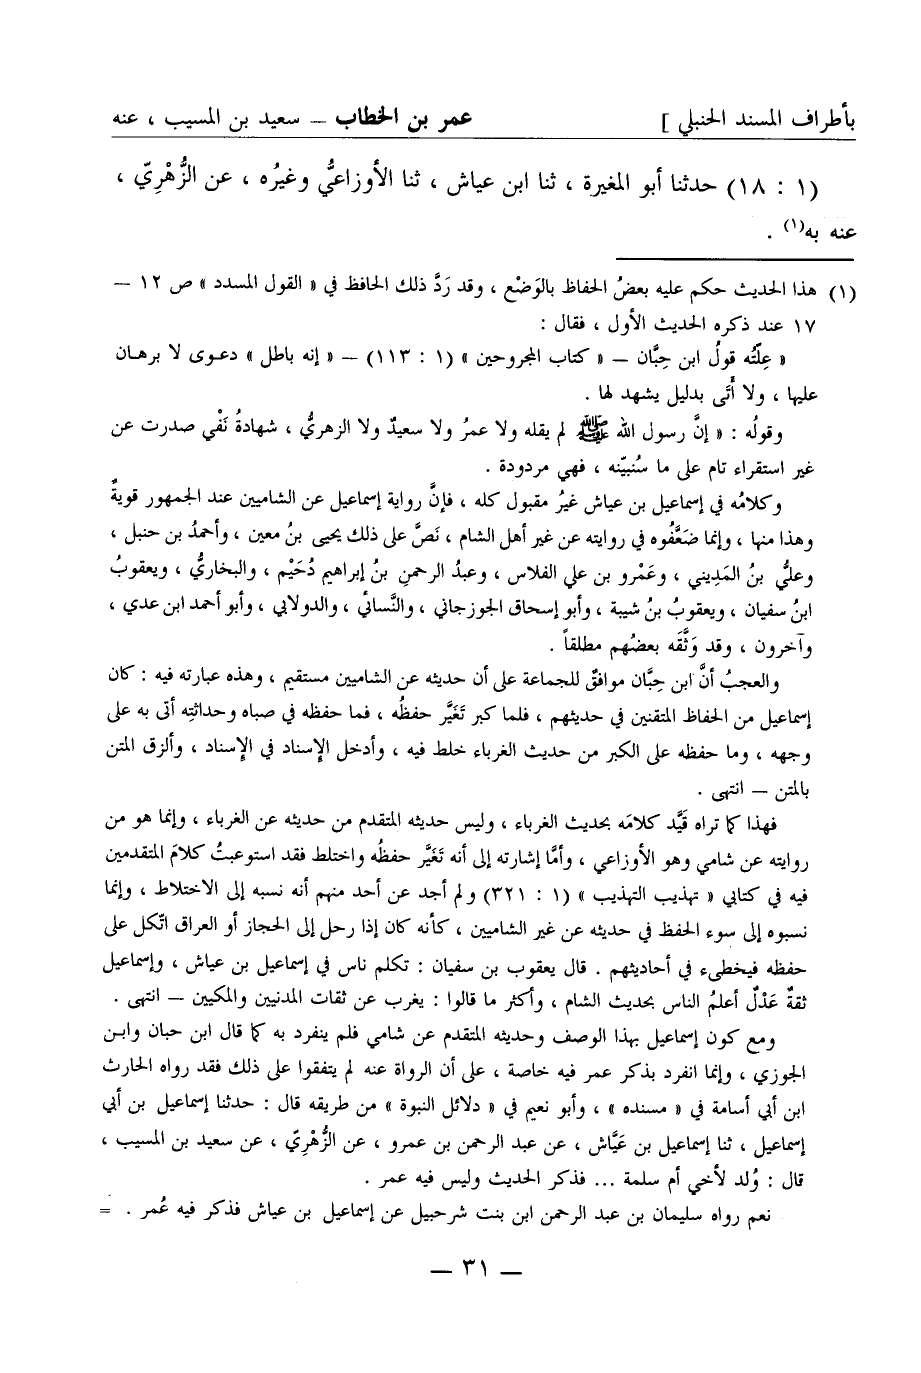 بأطراف المسند الحنبلي ] عمر بن الخطاب – سعيد بن المسيب ، عنه
(١ : ١٨) حدثنا أبو المغيرة ، ثنا ابن عياش ، ثنا الأوزاعيُّ وغيرُه ، عن الزُّهْرِيّ ،
عنه به(١) .
(١) هذا الحديث حكم عليه بعضُ الحفاظ بالوَضْع ، وقد رَدَّ ذلك الحافظ في « القول المسدد » ص ١٢ –
١٧ عند ذكره الحديث الأول ، فقال :
« عِلّتُه قولُ ابن حِبَّان – « كتاب المجروحين » (١ : ١١٣) – « إنه باطل » دعوى لا برهان
عليها ، ولا أَتَى بدليل يشهد لها .
وقولُه : « إنَّ رسول الله ﷺ لم يقله ولا عمرُ ولا سعيدٌ ولا الزهريُّ ، شهادةُ نَفْي صدرت عن
غير استقراء تام على ما سنُبيّنه ، فهي مردودة .
وكلامُه في إسماعيل بن عياش غيرُ مقبول كله ، فإنَّ رواية إسماعيل عن الشاميين عند الجمهور قويةٌ
وهذا منها ، وإنما ضَعَّفُوه في روايته عن غير أهل الشام ، نَصَّ على ذلك يحيى بنُ معين ، وأحمدُ بن حنبل ،
وعليُّ بنُ المَدِيني ، وعَمْرو بن علي الفلاس ، وعبدُ الرحمنِ بنُ إبراهيم دُحَيْم ، والبخاريُّ ، ويعقوبُ
ابنُ سفيان ، ويعقوبُ بنُ شيبة ، وأبو إسحاق الجوزجاني ، والنَّسائي ، والدولابي ، وأبو أحمد ابن عدي ،
وآخرون ، وقد وَثَّقَه بعضُهم مطلقاً .
والعجبُ أنَّ ابن حِبَّان موافقٌ للجماعة على أن حديثه عن الشاميين مستقيم ، وهذه عبارته فيه : كان
إسماعيل من الحفاظ المتقنين في حديثهم ، فلما كبر تَغَيَّر حفظُه ، فما حفظه في صباه وحداثتِه أتى به على
وجهه ، وما حفظه على الكبر من حديث الغرباء خلط فيه ، وأدخل الإِسناد في الإِسناد ، وألزق المتن
بالمتن – انتهى .
فهذا كما تراه قَيَّد كلامَه بحديث الغرباء ، وليس حديثه المتقدم من حديثه عن الغرباء ، وإنما هو من
روايته عن شامي وهو الأوزاعي ، وأمَّا إشارته إلى أنه تَغَيَّر حفظُه واختلط فقد استوعبتُ كلامَ المتقدمين
فيه في كتابي « تهذيب التهذيب » (١ : ٣٢١) ولم أجد عن أحد منهم أنه نسبه إلى الاختلاط ، وإنما
نسبوه إلى سوء الحفظ في حديثه عن غير الشاميين ، كأنه كان إذا رحل إلى الحجاز أو العراق اتّكل على
حفظه فيخطىء في أحاديثهم . قال يعقوب بن سفيان : تكلم ناس في إسماعيل بن عياش ، وإسماعيل
ثقةٌ عَدْلٌ أعلمُ الناس بحديث الشام ، وأكثر ما قالوا : يغرب عن ثقات المدنيين والمكيين – انتهى .
ومع كون إسماعيل بهذا الوصف وحديثه المتقدم عن شامي فلم ينفرد به كما قال ابن حبان وابن
الجوزي ، وإنما انفرد بذكر عمر فيه خاصة ، على أن الرواة عنه لم يتفقوا على ذلك فقد رواه الحارث
ابن أبي أسامة في « مسنده » ، وأبو نعيم في « دلائل النبوة » من طريقه قال : حدثنا إسماعيل بن أبي
إسماعيل ، ثنا إسماعيل بن عَيَّاش ، عن عبد الرحمن بن عمرو ، عن الزُّهْرِيّ ، عن سعيد بن المسيب ،
قال : وُلد لأخي أم سلمة ... فذكر الحديث وليس فيه عمر .
نعم رواه سليمان بن عبد الرحمن ابن بنت شرحبيل عن إسماعيل بن عياش فذكر فيه عُمر . =
– ٣١ –